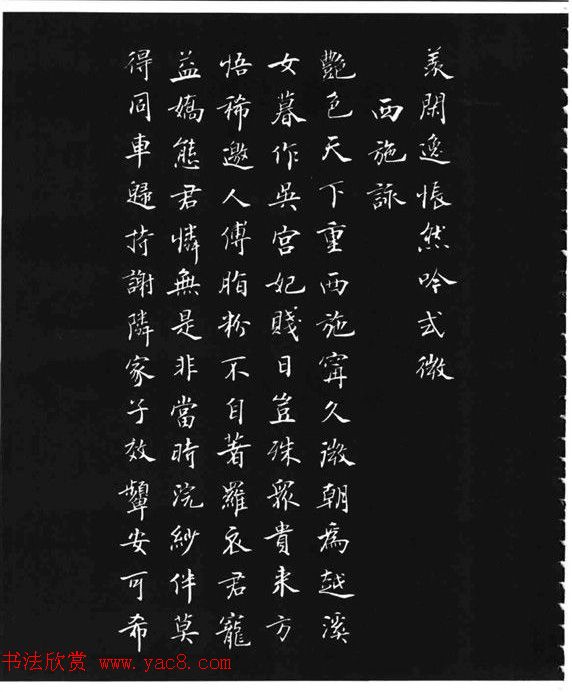 羨閑逸悵然吟式微
西施詠
艷色天下重西施寧久微朝爲越溪
女暮作吳宮妃賤日豈殊眾貴来方
悟稀邀人傅脂粉不自著羅衣君寵
益嬌態君憐無是非當時浣紗伴莫
得同車歸持謝隣家子效顰安可希
书法欣赏 www.yac8.com